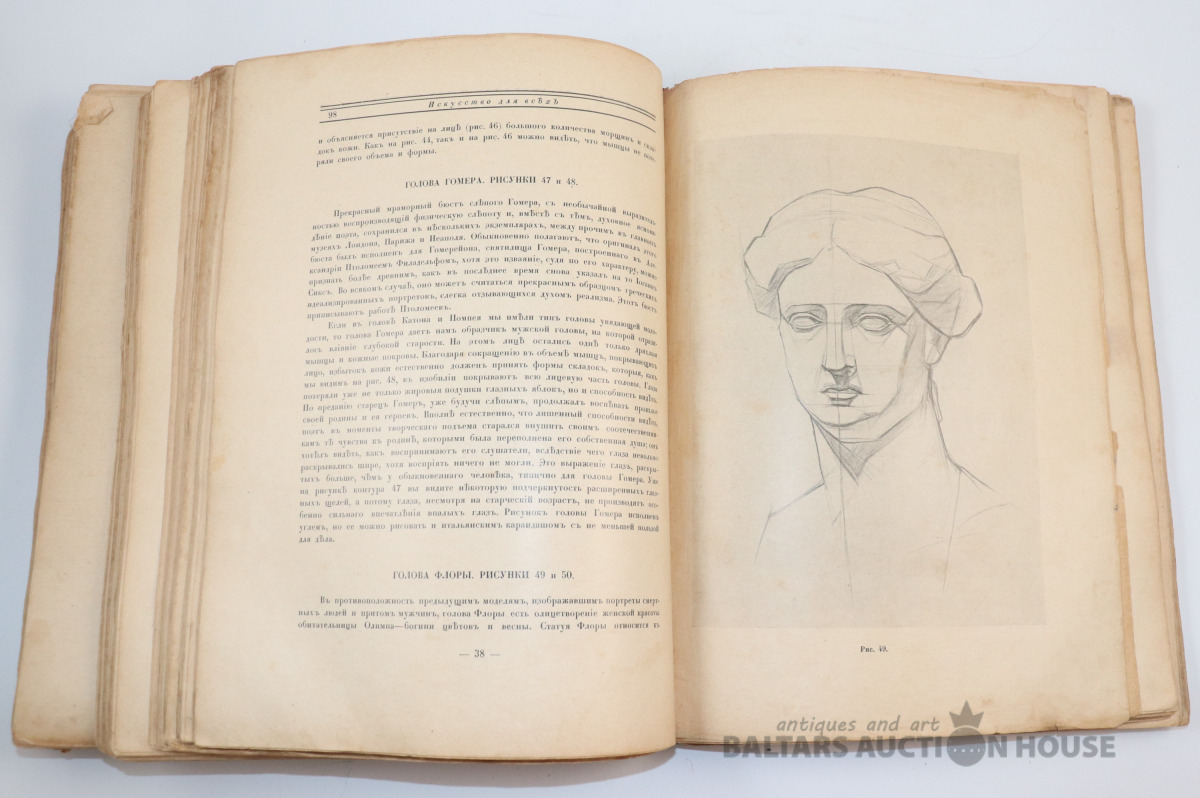 Искусство для всѣхъ
98
и объясняется присутствіе на лицѣ (рис. 46) большого количества морщинъ и скла-
докъ кожи. Какъ на рис. 44, такъ и на рис. 46 можно видѣть, что мышцы не поте-
ряли своего объема и формы.
ГОЛОВА ГОМЕРА. РИСУНКИ 47 и 48.
Прекрасный мраморный бюстъ слѣпого Гомера, съ необычайной выразитель-
ностью воспроизводящій физическую слѣпоту и, вмѣстѣ съ тѣмъ, духовное
дѣніе поэта, сохранился въ нѣсколькихъ экземплярахъ, между прочимъ въ главныхъ
музеяхъ Лондона, Парижа и Неаполя. Обыкновенно полагаютъ, что оригиналъ этого
бюста былъ исполненъ для Гомерейона, святилища Гомера, построеннаго въ Але-
ксандріи Птоломеемъ Филадельфомъ, хотя это изваяніе, судя по его характеру, можно
признать болѣе древнимъ, какъ въ послѣднее время снова указалъ на то
Сиксъ. Во всякомъ случаѣ, оно можетъ считаться прекраснымъ образцомъ греческихъ
идеализированныхъ портретовъ, слегка отзывающихся духомъ реализма. Этотъ бюстъ
приписываютъ работѣ Птоломеевъ.
Если въ головѣ Катона и Помпея мы имѣли типъ головы увядающей моло-
дости, то голова Гомера даетъ намъ образчикъ мужской головы, на которой отрази-
лось вліяніе глубокой старости. На этомъ лицѣ остались однѣ только дряблыя
мышцы и кожные покровы. Благодаря сокращенію въ объемѣ мышцъ, покрывающихъ
лицо, избытокъ кожи естественно долженъ принять формы складокъ, которыя, какъ
мы видимъ на рис. 48, въ изобиліи покрываютъ всю лицевую часть головы. Глаза
потеряли уже не только жировыя подушки глазныхъ яблокъ, но и способность видѣть.
По преданію старецъ Гомеръ, уже будучи слѣпымъ, продолжалъ воспѣвать прошлое
своей родины и ея героевъ. Вполнѣ естественно, что лишенный способности видѣть,
поэтъ въ моменты творческаго подъема старался внушить своимъ соотечественни-
камъ тѣ чувства къ родинѣ, которыми была переполнена его собственная душа; онъ
хотѣлъ видѣть, какъ воспринимаютъ его слушатели, вслѣдствіе чего глаза невольно
раскрывались шире, хотя воспріять ничего не могли. Это выраженіе глазъ, раскры-
тыхъ больше, чѣмъ у обыкновеннаго человѣка, типично для головы Гомера. Уже
на рисункѣ контура 47 вы видите нѣкоторую подчеркнутость расширенныхъ глаз-
ныхъ щелей, а потому глаза, несмотря на старческій возрастъ, не производятъ осо-
бенно сильнаго впечатлѣнія впалыхъ глазъ. Рисунокъ головы Гомера исполненъ
углемъ, но ее можно рисовать и итальянскимъ карандашомъ съ не меньшей пользой
для дѣла.
ГОЛОВА ФЛОРЫ. РИСУНКИ 49 и 50.
Въ противоположность предыдущимъ моделямъ, изображавшимъ портреты смерт-
ныхъ людей и притомъ мужчинъ, голова Флоры есть олицетвореніе женской красоты
обитательницы Олимпа—богини цвѣтовъ и весны. Статуя Флоры относится къ
— 38 —
Рис. 49.
antiques and art
BALTARS AUCTION HOUSE